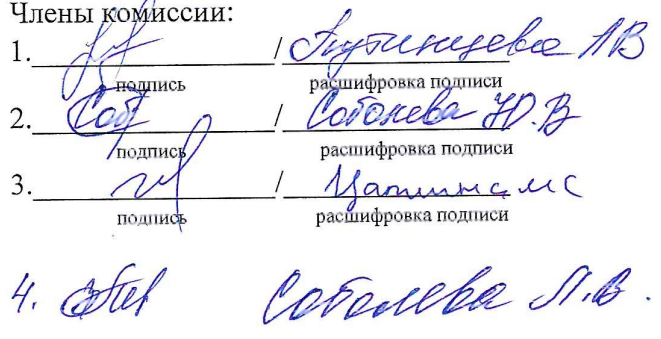 Члены комиссии:
1. / Путинцева ЛВ
подпись расшифровка подписи
2. Соб / Соболева Ю.В
подпись расшифровка подписи
3. /
подпись расшифровка подписи
4. Соболева Л.В.